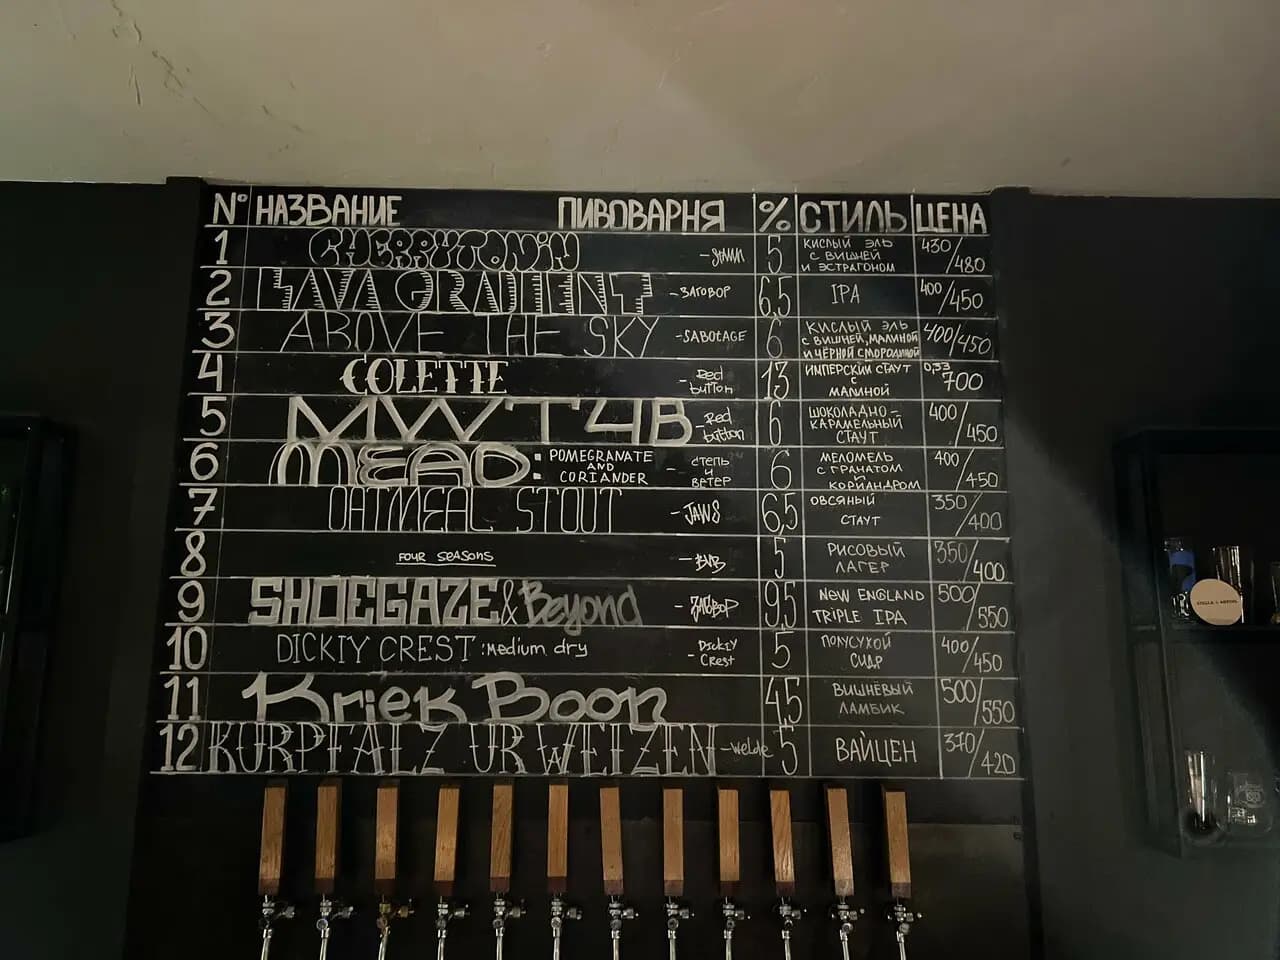 N° НАЗВАНИЕ ПИВОВАРНЯ % СТИЛЬ ЦЕНА
1 CHERRYTONIN 5 КИСЛЫЙ ЭЛЬ С ВИШНЕЙ И ЭСТРАГОНОМ 430/480
2 LAVA GRADIENT - ЗАГОВОР 6,5 IPA 400/450
3 ABOVE THE SKY - SABOTAGE 6 КИСЛЫЙ ЭЛЬ С ВИШНЕЙ, МАЛИНОЙ И ЧЁРНОЙ СМОРОДИНОЙ 400/450
4 COLETTE - Red button 13 ИМПЕРСКИЙ СТАУТ С МАЛИНОЙ 0,33 700
5 MWT4B - Red button 6 ШОКОЛАДНО-КАРАМЕЛЬНЫЙ СТАУТ 400/450
6 MEAD: POMEGRANATE AND CORIANDER - степь и ветер 6 МЕЛОМЕЛЬ С ГРАНАТОМ И КОРИАНДРОМ 400/450
7 OATMEAL STOUT - JAWS 6,5 ОВСЯНЫЙ СТАУТ 350/400
8 FOUR SEASONS - BVB 5 РИСОВЫЙ ЛАГЕР 350/400
9 SHOEGAZE & Beyond - ЗАГОВОР 9,5 NEW ENGLAND TRIPLE IPA 500/550
10 DICKIY CREST: Medium dry - DICKIY Crest 5 ПОЛУСУХОЙ СИДР 400/450
11 Kriek Boon 4,5 ВИШНЁВЫЙ ЛАМБИК 500/550
12 KURPFALZ URWEIZEN - welde 5 ВАЙЦЕН 370/420